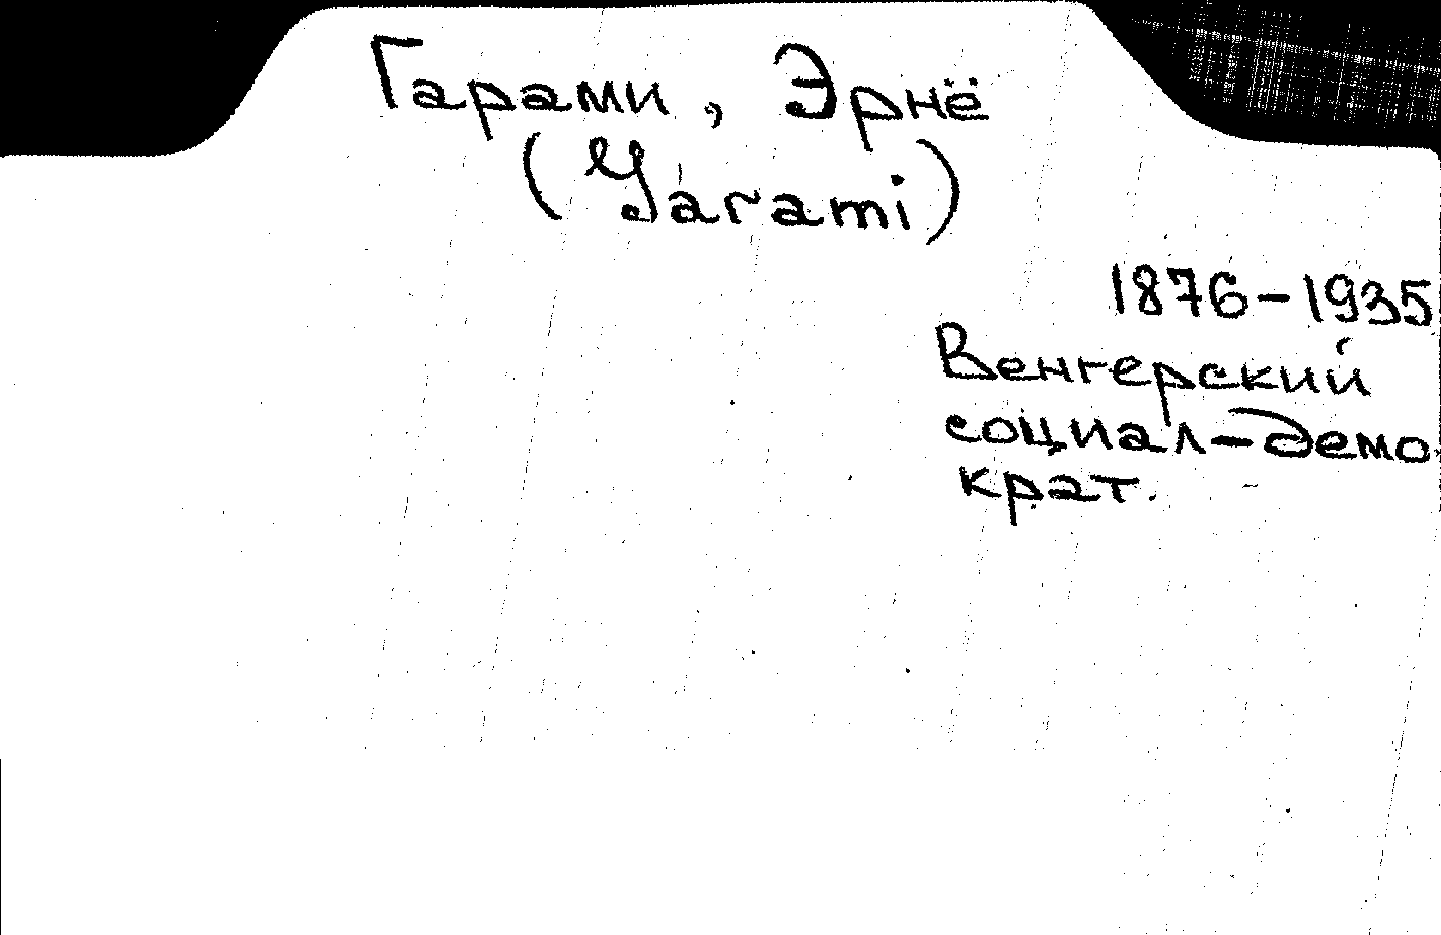 Гарами, Эрнё
(Garami)
1876-1935
Венгерский
социал-демо
крат.